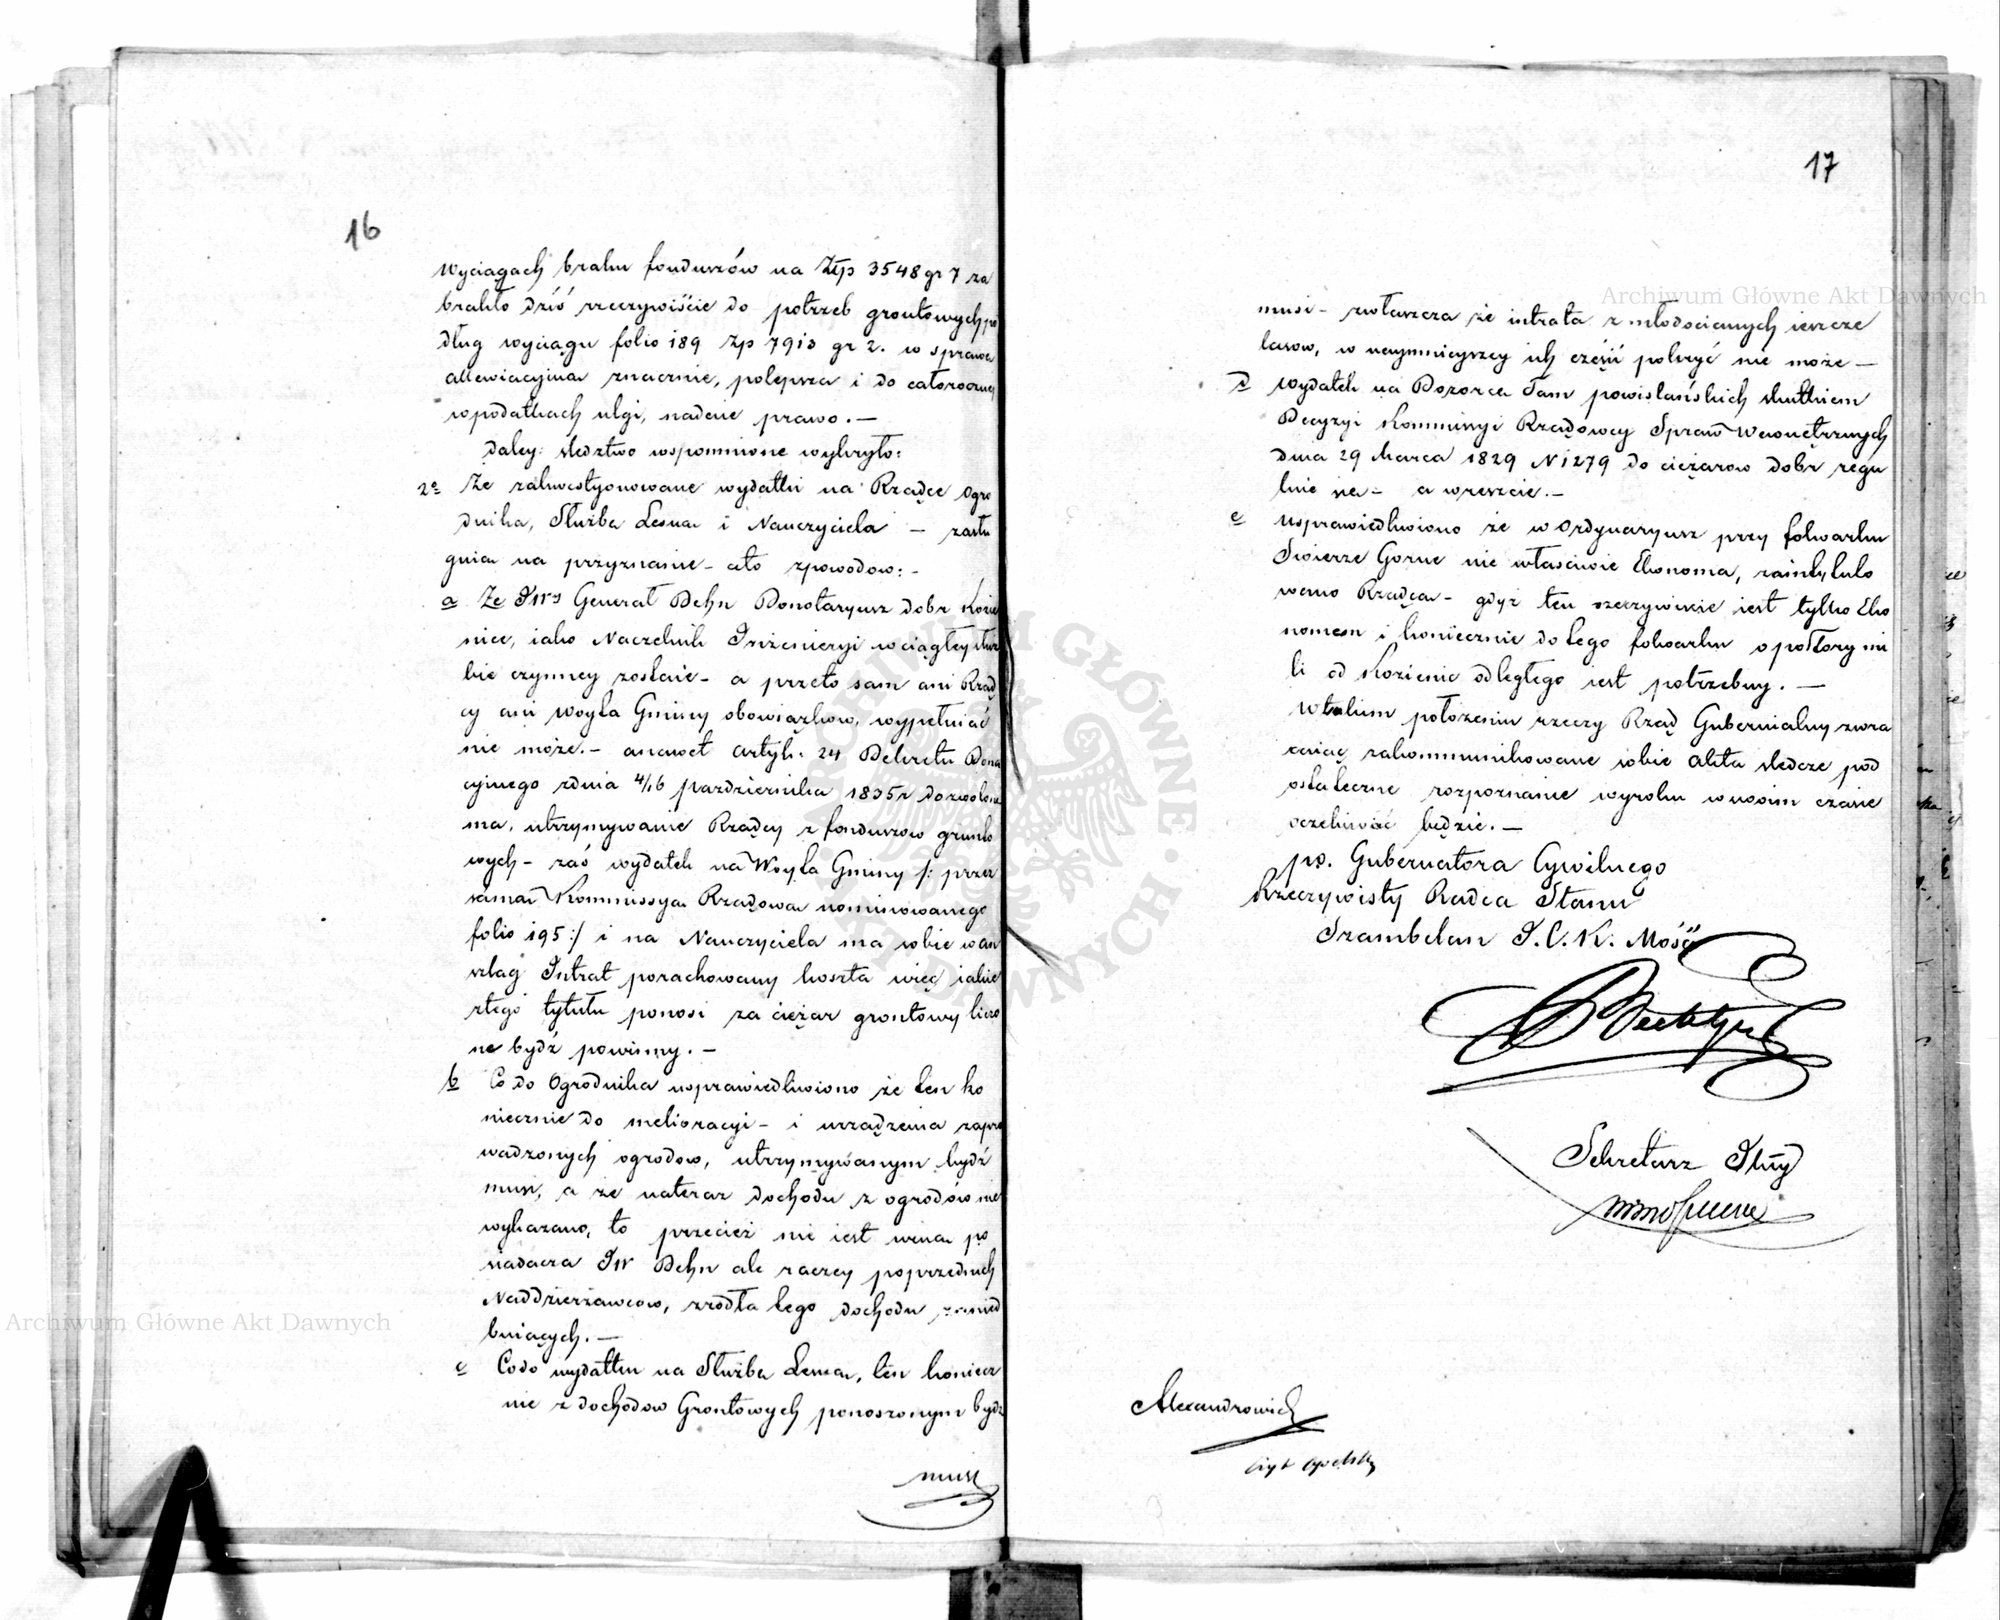 16
Wyciągach braku funduszów na Złp 3548 gr 7 za
brakło dziś rzeczywiście do potrzeb grontowych po
dług wyciągu folio 189 Zp 7913 gr 2. w sprawa
allewiacyjna znacznie, polepsza i do całoroczney
w podatkach ulgi, nadaie prawo. —
daley: śledztwo wspomnione wykryło:
2e Że zakwestyonowane wydatki na Rządcę Ogro
dnika, Służba Lesna i Nauczyciela — zasłu
guia na przyznanie – a to z powodow: –
a Że JWy Generał Dehn Donotaryusz dobr Kozie
nice, iako Naczelnik Inżenieryi w ciągłey służ
bie czynney zostaie – a przeto sam ani Rząd
cy ani Woyta Gminy obowiązkow, wypełniać
nie może. – a nawet artyk. 24 Dekretu Dona
cyinego z dnia 4/16 pazdziernika 1835 r dozwolone
ma, utrzymywanie Rządcy z funduszow grunto
wych – zaś wydatek na Woyta Gminy /: przez
sama Kommissya Rządowa nominowanego
folio 195 :/ i na Nauczyciela ma sobie w an
szlag Intrat porachowany koszta więc iakie
z tego tytułu ponosi za ciężar grontowy liczo
ne bydź powinny. –
b Co do Ogrodnika usprawiedliwiono że ten ko
niecznie do melioracyi – i urządzenia zapro
wadzonych ogrodow, utrzymywanym bydź
musi, a że na teraz dochodu z ogrodów nie
wykazano, to przecież nie iest wina po
siadacza JW Dehn ale raczey poprzednich
Naddzierżawcow, zrodła tego dochodu zanied
buiących. —
c Co do wydatku na Służba Lesna, ten koniecz
nie z dochodow Grontowych ponoszonym bydź
musi
17
musi – zwłaszcza że intrata z młodocianych ieszcze
lasow, w naymnieyszey ich części pokryć nie może —
d Wydatek na Dozorca Tam powislańskich skutkiem
Decyzyi Kommissyi Rządowey Spraw Wewnętrznych
dnia 29 Marca 1829 N 1279 do ciężarow dobr regu
a wreszcie. –
e Usprawiedliwiono że w Ordynaryusz przy folwarku
Swierze Gorne nie właściwie Ekonoma, zaintytulo
wano Rządca – gdyż ten rzeczywiscie iest tylko Eko
nomem i koniecznie do tego folwarku o połtory mi
li od Kozienic odległego iest potrzebny. —
W takim położeniu rzeczy Rząd Gubernialny zwra
caiąc zakommunikowane sobie akta śledcze pod
ostateczne rozpoznanie wyroku w swoim czasie
oczekiwać będzie. —
po. Gubernatora Cywilnego
Rzeczywisty Radca Stanu
Szambelan J. C. K. Mość
Sekretarz
Alexandrowicz